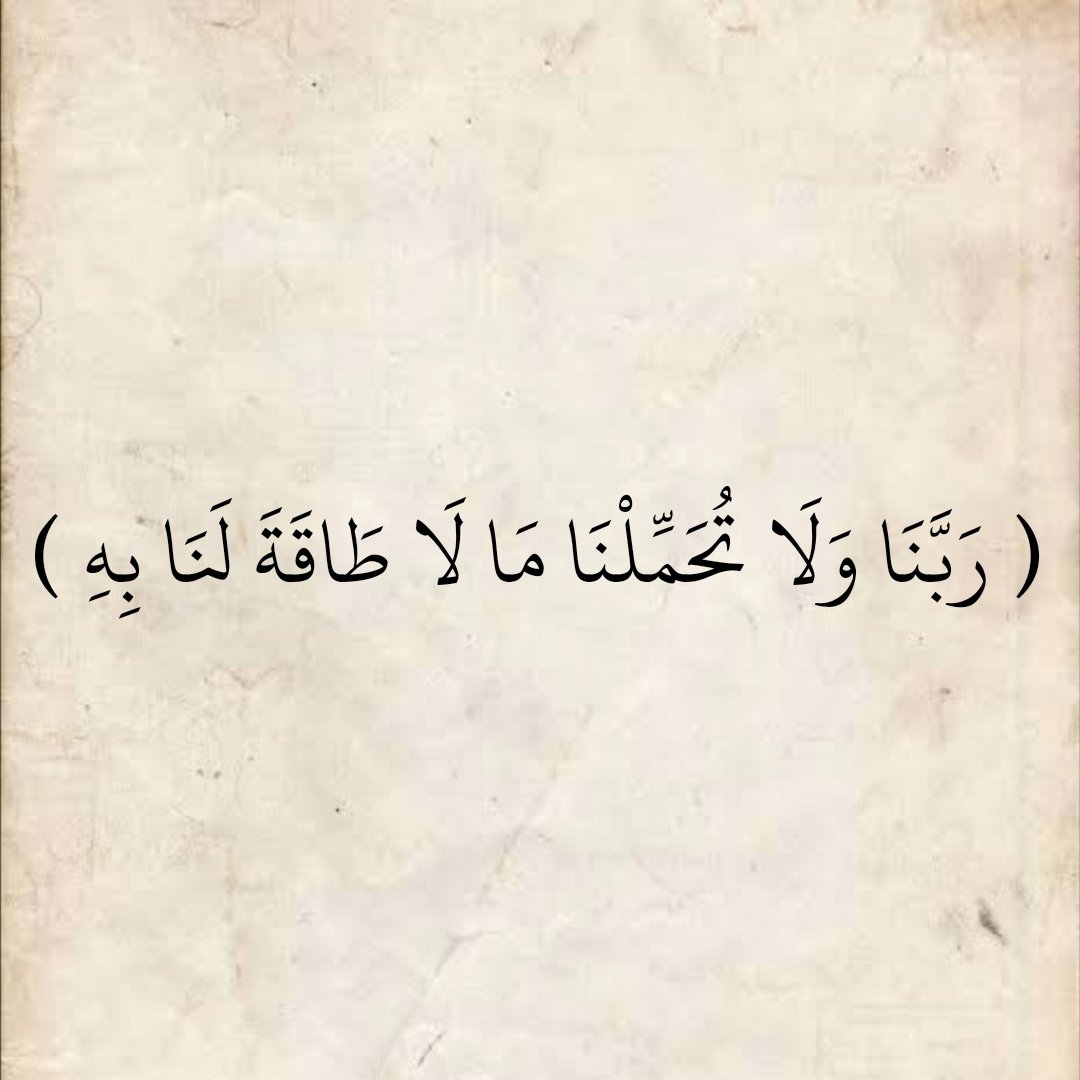 ( رَبَّنَا وَلَا تُحَمِّلْنَا مَا لَا طَاقَةَ لَنَا بِهِ )